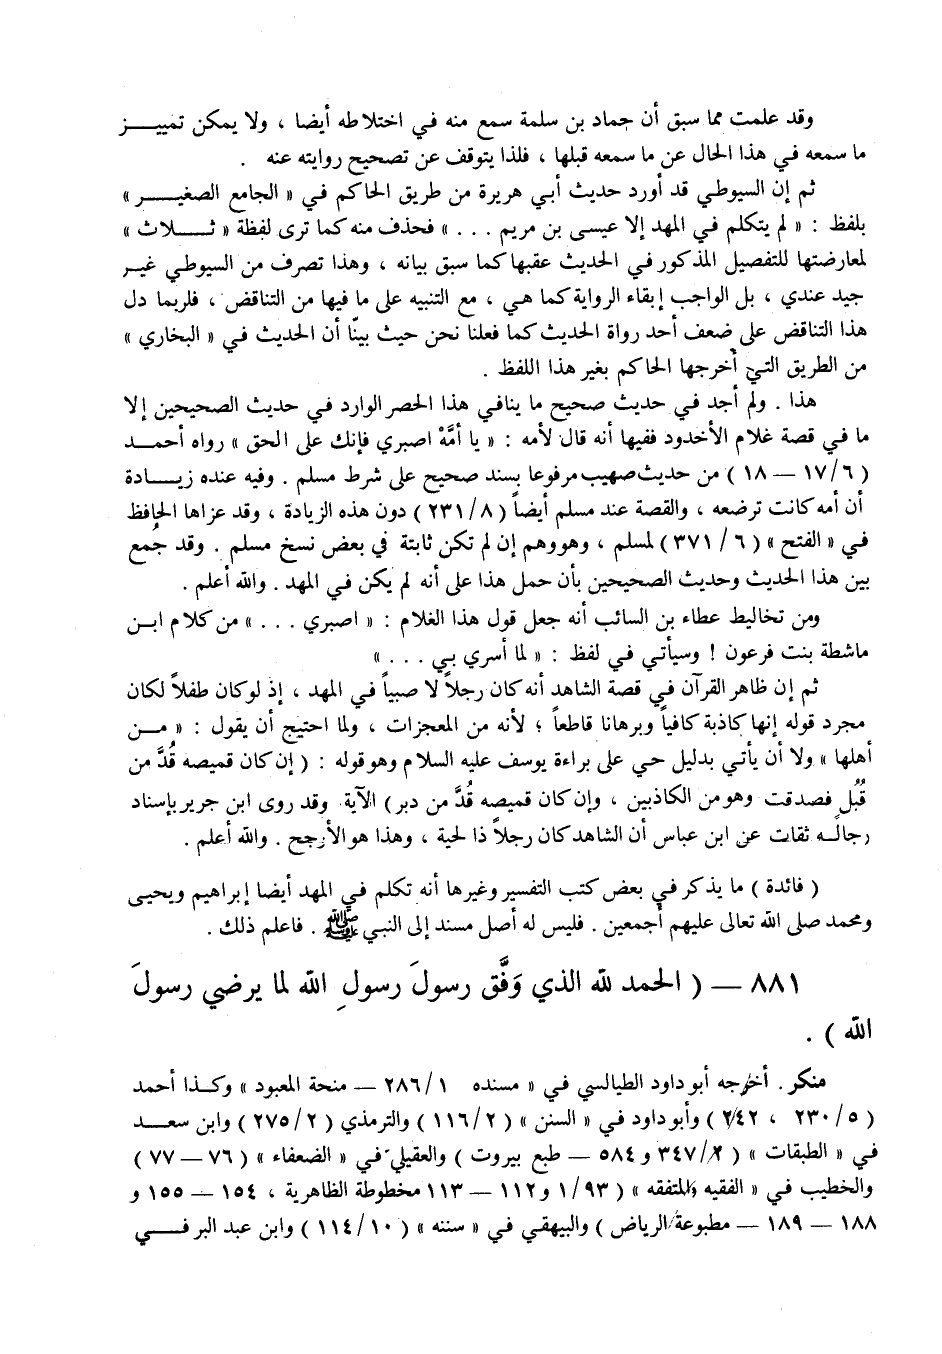 وقد علمت مما سبق أن حماد بن سلمة سمع منه في اختلاطه أيضا ، ولا يمكن تمييـــز
ما سمعه في هذا الحال عن ما سمعه قبلها ، فلذا يتوقف عن تصحيح روايته عنه .
ثم إن السيوطي قد أورد حديث أبي هريرة من طريق الحاكم في « الجامع الصغيـــر »
بلفظ : « لم يتكلم في المهد إلا عيسى بن مريم . . . » فحذف منه كما ترى لفظة « ثـــلاث »
لمعارضتها للتفصيل المذكور في الحديث عقبها كما سبق بيانه ، وهذا تصرف من السيوطي غيـر
جيد عندي ، بل الواجب إبقاء الرواية كما هي ، مع التنبيه على ما فيها من التناقض ، فلربما دل
هذا التناقض على ضعف أحد رواة الحديث كما فعلنا نحن حيث بينّا أن الحديث في « البخاري »
من الطريق التي أخرجها الحاكم بغير هذا اللفظ .
هذا . ولم أجد في حديث صحيح ما ينافي هذا الحصر الوارد في حديث الصحيحين إلا
ما في قصة غلام الأخدود ففيها أنه قال لأمه : « يا أمَّهْ اصبري فإنك على الحق » رواه أحمـــد
( ٦/١٧ — ١٨ ) من حديث صهيب مرفوعا بسند صحيح على شرط مسلم . وفيه عنده زيـــادة
أن أمه كانت ترضعه ، والقصة عند مسلم أيضاً ( ٨/٢٣١ ) دون هذه الزيادة ، وقد عزاها الحافظ
في « الفتح » ( ٦/ ٣٧١ ) لمسلم ، وهو وهم إن لم تكن ثابتة في بعض نسخ مسلم . وقد جُمع
بين هذا الحديث وحديث الصحيحين بأن حمل هذا على أنه لم يكن في المهد . والله أعلم .
ومن تخاليط عطاء بن السائب أنه جعل قول هذا الغلام : « اصبري . . . » من كلام ابـن
ماشطة بنت فرعون ! وسيأتي في لفظ : « لما أسري بي . . . »
ثم إن ظاهر القرآن في قصة الشاهد أنه كان رجلاً لا صبياً في المهد ، إذ لو كان طفلاً لكان
مجرد قوله إنها كاذبة كافياً وبرهانا قاطعاً ؛ لأنه من المعجزات ، ولما احتيج أن يقول : « مـــن
أهلها » ولا أن يأتي بدليل حي على براءة يوسف عليه السلام وهو قوله : ( إن كان قميصه قُدَّ من
قُبُلٍ فصدقت وهو من الكاذبين ، وإن كان قميصه قُدَّ من دبر ) الآية وقد روى ابن جرير بإسناد
رجالـه ثقات عن ابن عباس أن الشاهد كان رجلاً ذا لحية ، وهذا هو الأرجح . والله أعلم .
( فائدة ) ما يذكر في بعض كتب التفسير وغيرها أنه تكلم في المهد أيضا إبراهيم ويحيـى
ومحمد صلى الله تعالى عليهم أجمعين . فليس له أصل مسند إلى النبي ﷺ . فاعلم ذلك .
٨٨١ — ( الحمد لله الذي وَفَّق رسولَ رسولِ الله لما يرضي رسولَ
الله ) .
منكر . أخرجه أبو داود الطيالسي في « مسنده ١/٢٨٦ — منحة المعبود » وكـذا أحمد
( ٥/ ٢٣٠ ، ٢٤٢ ) وأبو داود في « السنن » ( ٢/١١٦ ) والترمذي ( ٢/٢٧٥ ) وابن سعـــد
في « الطبقات » ( ٢/٣٤٧ و ٥٨٤ — طبع بيروت ) والعقيلي في « الضعفاء » ( ٧٦ — ٧٧ )
والخطيب في « الفقيه والمتفقه » ( ٩٣/ ١ و ١١٢ — ١١٣ مخطوطة الظاهرية ، ١٥٤ — ١٥٥ و
١٨٨ — ١٨٩ — مطبوعة الرياض ) والبيهقي في « سننه » ( ١٠/ ١١٤ ) وابن عبد البر فـــي